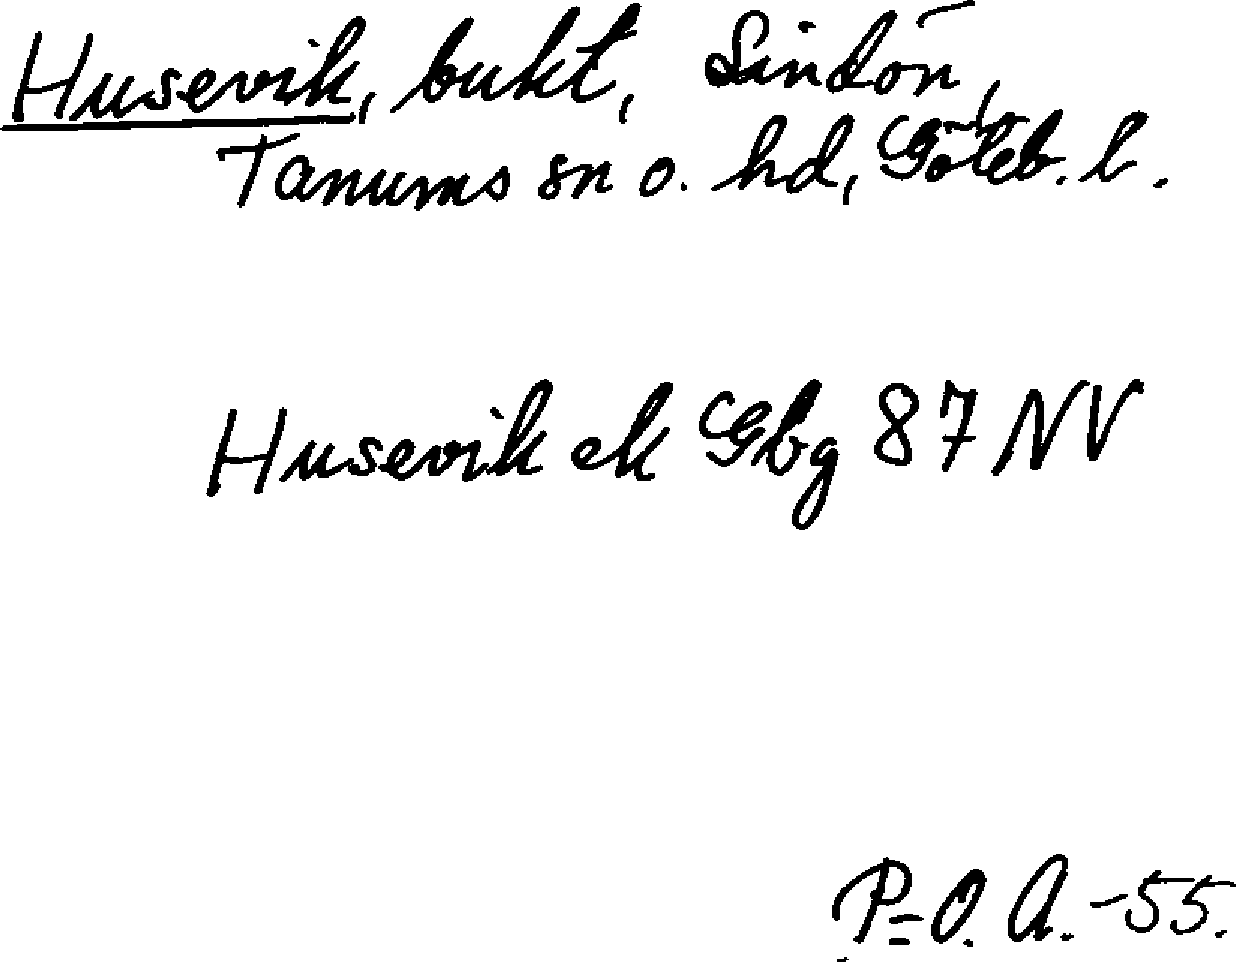 Husevik, bukt, Lindön,
Tanums sn o. hd, Göteb. l.
Husevik ek Gbg 87 NV
P-O. A. -55.